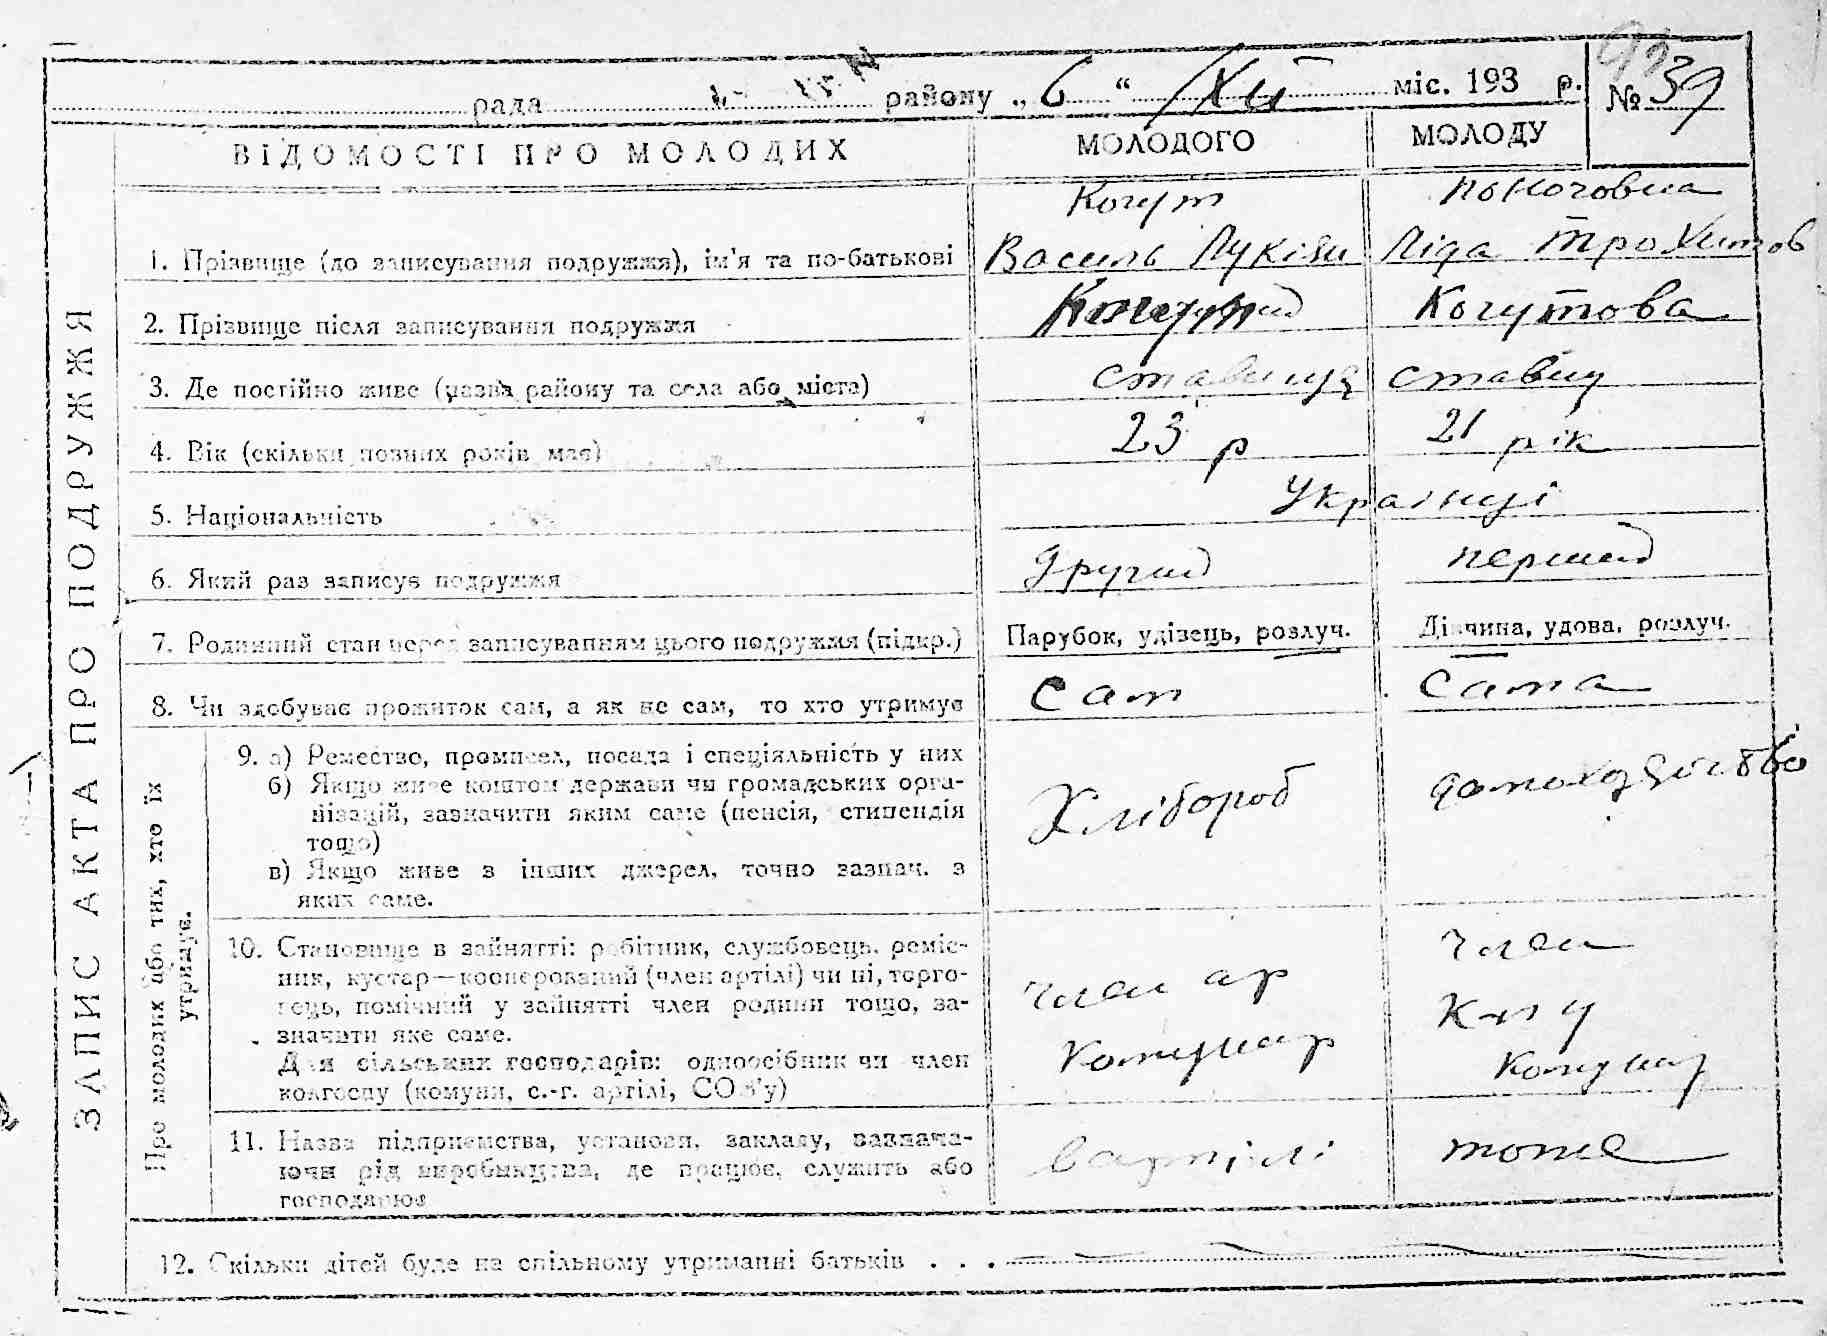 рада району „6“ XII міс. 193 р. № 39
ЗАПИС АКТА ПРО ПОДРУЖЖЯ
ВІДОМОСТІ ПРО МОЛОДИХ МОЛОДОГО МОЛОДУ
Когут
1. Прізвище (до записування подружжя), ім'я та по-батькові Василь Лукіян Ліда Трохимов
2. Прізвище після записування подружжя Когутова
3. Де постійно живе (назва району та села або міста) ставище ставищ
4. Вік (скільки повних років має) 23 р 21 рік
5. Національність Українці
6. Який раз записує подружжя другий перший
7. Родинний стан перед записуванням цього подружжя (підкр.) Парубок, удівець, розлуч. Дівчина, удова, розлуч.
8. Чи здобуває прожиток сам, а як не сам, то хто утримує Сам Сама
Про молодих або тих, хто їх
утримує.
9. а) Ремество, промисел, посада і спеціяльність у них
б) Якщо живе коштом держави чи громадських орга-
нізацій, зазначити яким саме (пенсія, стипендія
тощо)
в) Якщо живе з інших джерел, точно зазнач. з
яких саме.
Хлібороб
10. Становище в зайнятті: робітник, службовець, реміс-
ник, кустар—кооперований (член артілі) чи ні, торго-
вець, помічний у зайнятті член родини тощо, за-
значити яке саме.
Для сільських господарів: одноосібник чи член
колгоспу (комуни, с.-г. артілі, СОЗ'у)
член ар
Комунар
член
Комунар
11. Назва підприємства, установи, закладу, зазнача-
ючи рід виробництва, де працює, служить або
господарює
в артілі тоже
12. Скільки дітей буде на спільному утриманні батьків . . .